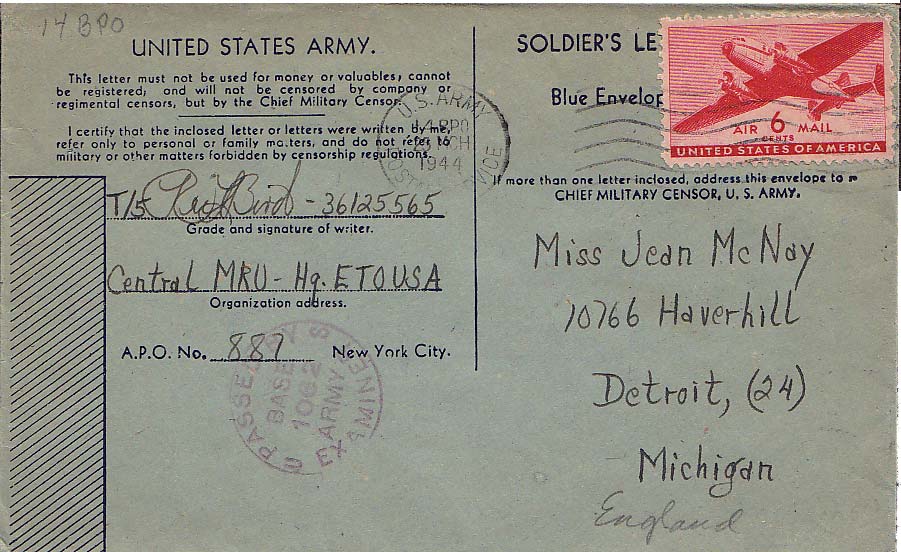 14 BPO
UNITED STATES ARMY.
This letter must not be used for money or valuables, cannot
be registered, and will not be censored by company or
regimental censors, but by the Chief Military Censor
I certify that the inclosed letter or letters were written by me,
refer only to personal or family matters, and do not refer to
military or other matters forbidden by censorship regulations.
T/5 Bird - 36125565
Grade and signature of writer.
Central MRU - Hq. ETOUSA
Organization address.
A.P.O. No. 887 New York City.
PASSED BY
BASE
1062
ARMY
EXAMINER
U S
SOLDIER'S LE
Blue Envelop
U.S. ARMY
1944
AIR 6 MAIL
CENTS
UNITED STATES OF AMERICA
If more than one letter inclosed, address this envelope to
CHIEF MILITARY CENSOR, U. S. ARMY.
Miss Jean McNay
10766 Haverhill
Detroit, (24)
Michigan
England